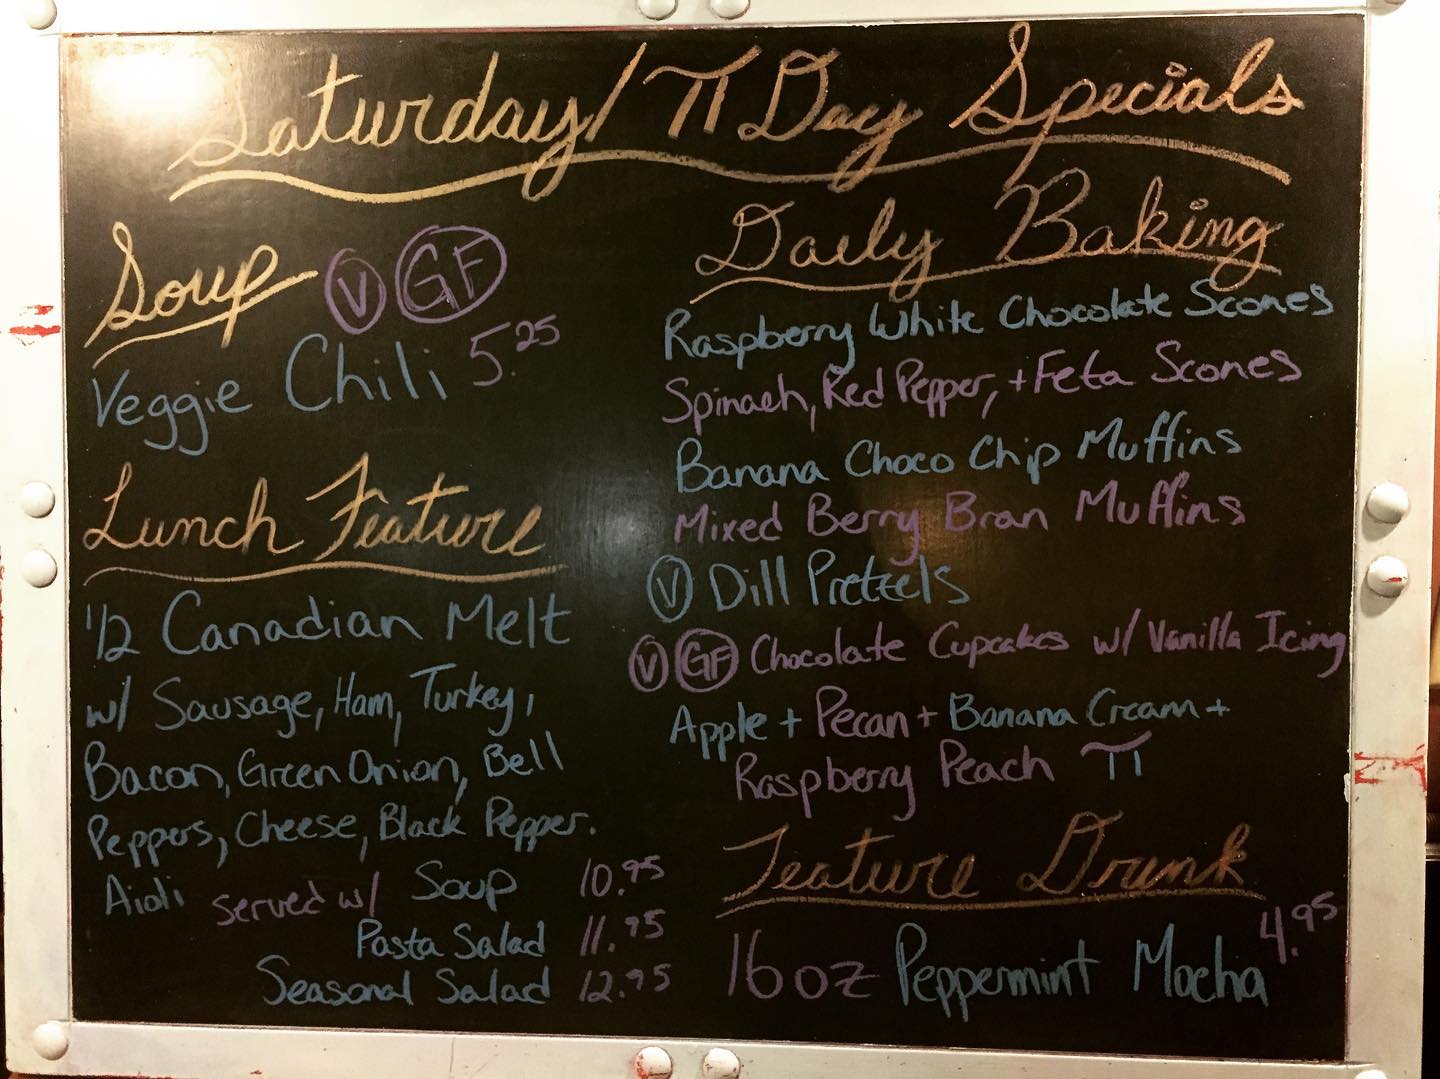 Saturday/π Day Specials
Soup V GF
Veggie Chili 5.25
Lunch Feature
1/2 Canadian Melt
w/ Sausage, Ham, Turkey,
Bacon, Green Onion, Bell
Peppers, Cheese, Black Pepper.
Aioli served w/ Soup 10.95
Pasta Salad 11.95
Seasonal Salad 12.95
Daily Baking
Raspberry White Chocolate Scones
Spinach, Red Pepper, + Feta Scones
Banana Choco Chip Muffins
Mixed Berry Bran Muffins
V Dill Pretzels
V GF Chocolate Cupcakes w/ Vanilla Icing
Apple + Pecan + Banana Cream +
Raspberry Peach π
Feature Drink
16oz Peppermint Mocha 4.95